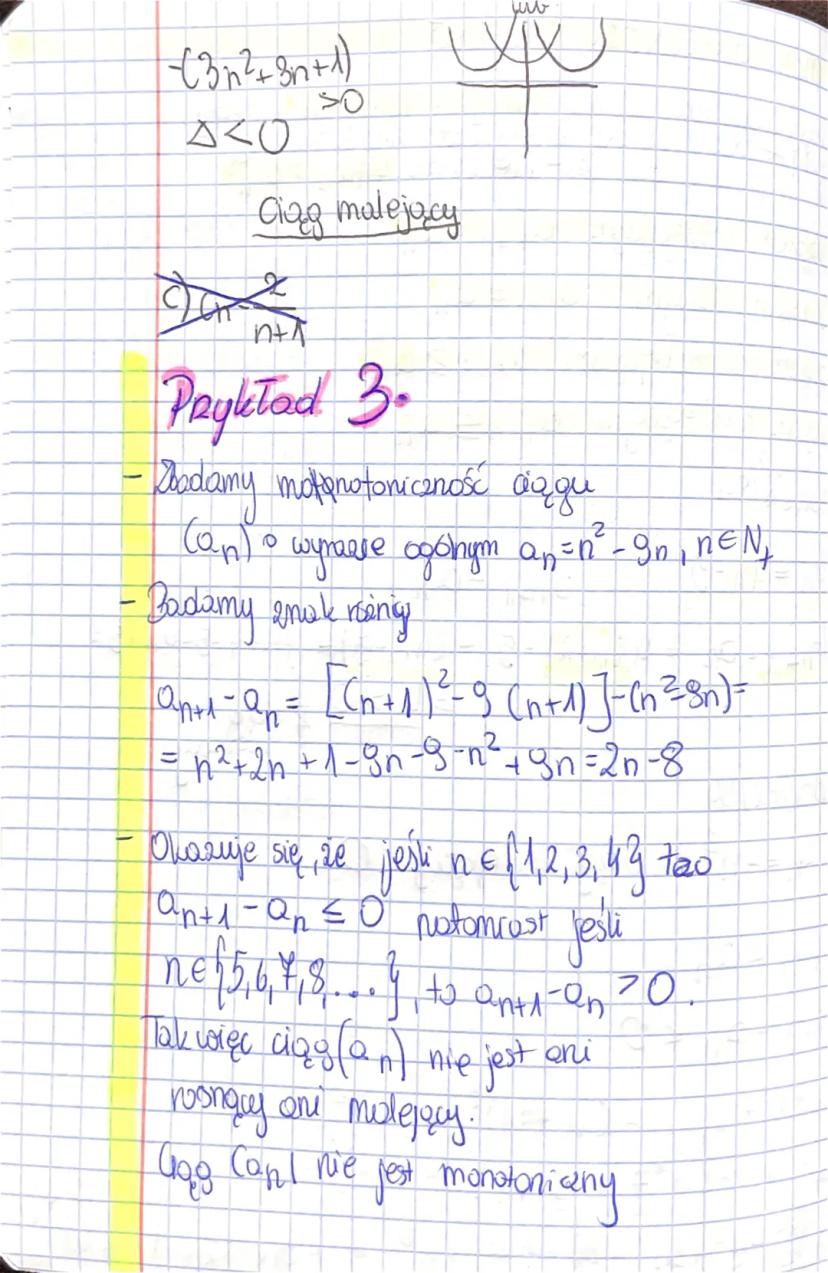 lub
-(3n²+3n+1)
>0
Δ<0
Ciąg malejący
c) Cn = 2/n+1
Przykład 3.
- Zbadamy monotoniczność ciągu
(an) o wyrazie ogólnym an=n²-9n, n∈N+
- Badamy znak różnicy
an+1-an= [(n+1)²-9(n+1)]-(n²-9n)=
= n²+2n+1-9n-9-n²+9n=2n-8
- Okazuje się, że jeśli n∈{1,2,3,4} to
an+1-an≤0 natomiast jeśli
n∈{5,6,7,8,...}, to an+1-an>0.
Tak więc ciąg (an) nie jest ani
rosnący ani malejący.
Ciąg (an) nie jest monotoniczny